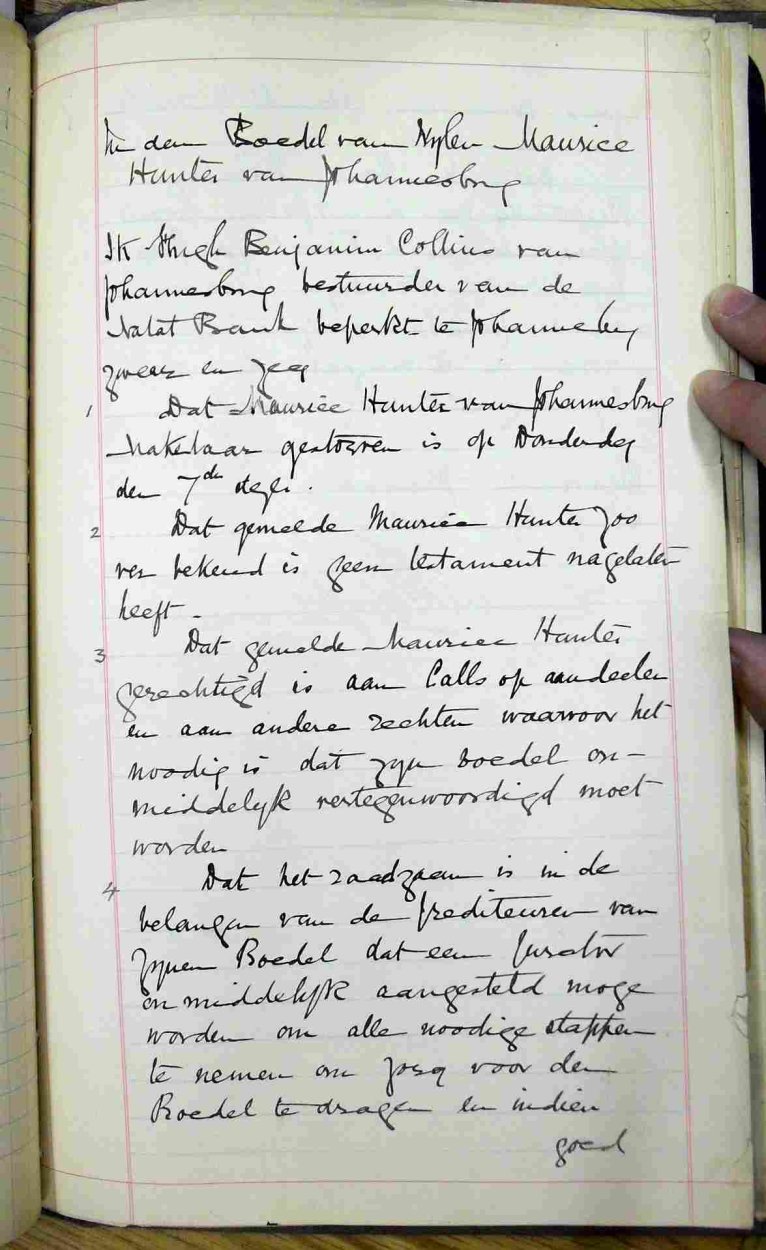 In den Boedel van Wylen Maurice
Hunter van Johannesburg
Ik Hugh Benjamin Collins van
Johannesburg bestuurder van de
Natal Bank beperkt te Johannesburg
zweer en zeg
1 Dat Maurice Hunter van Johannesburg
Makelaar gestorven is op Donderdag
den 7den dezer.
2 Dat gemelde Maurice Hunter zoo
ver bekend is geen testament nagelaten
heeft -
3 Dat gemelde Maurice Hunter
gerechtigd is aan Calls op aandeelen
en aan andere rechten waarvoor het
noodig is dat zyn boedel on-
middelyk vertegenwoordigd moet
worden
4 Dat het raadzaam is in de
belangen van de Krediteuren van
zynen Boedel dat een Curator
onmiddelyk aangesteld moge
worden om alle noodige stappen
te nemen om zorg voor den
Boedel te dragen en indien
goed